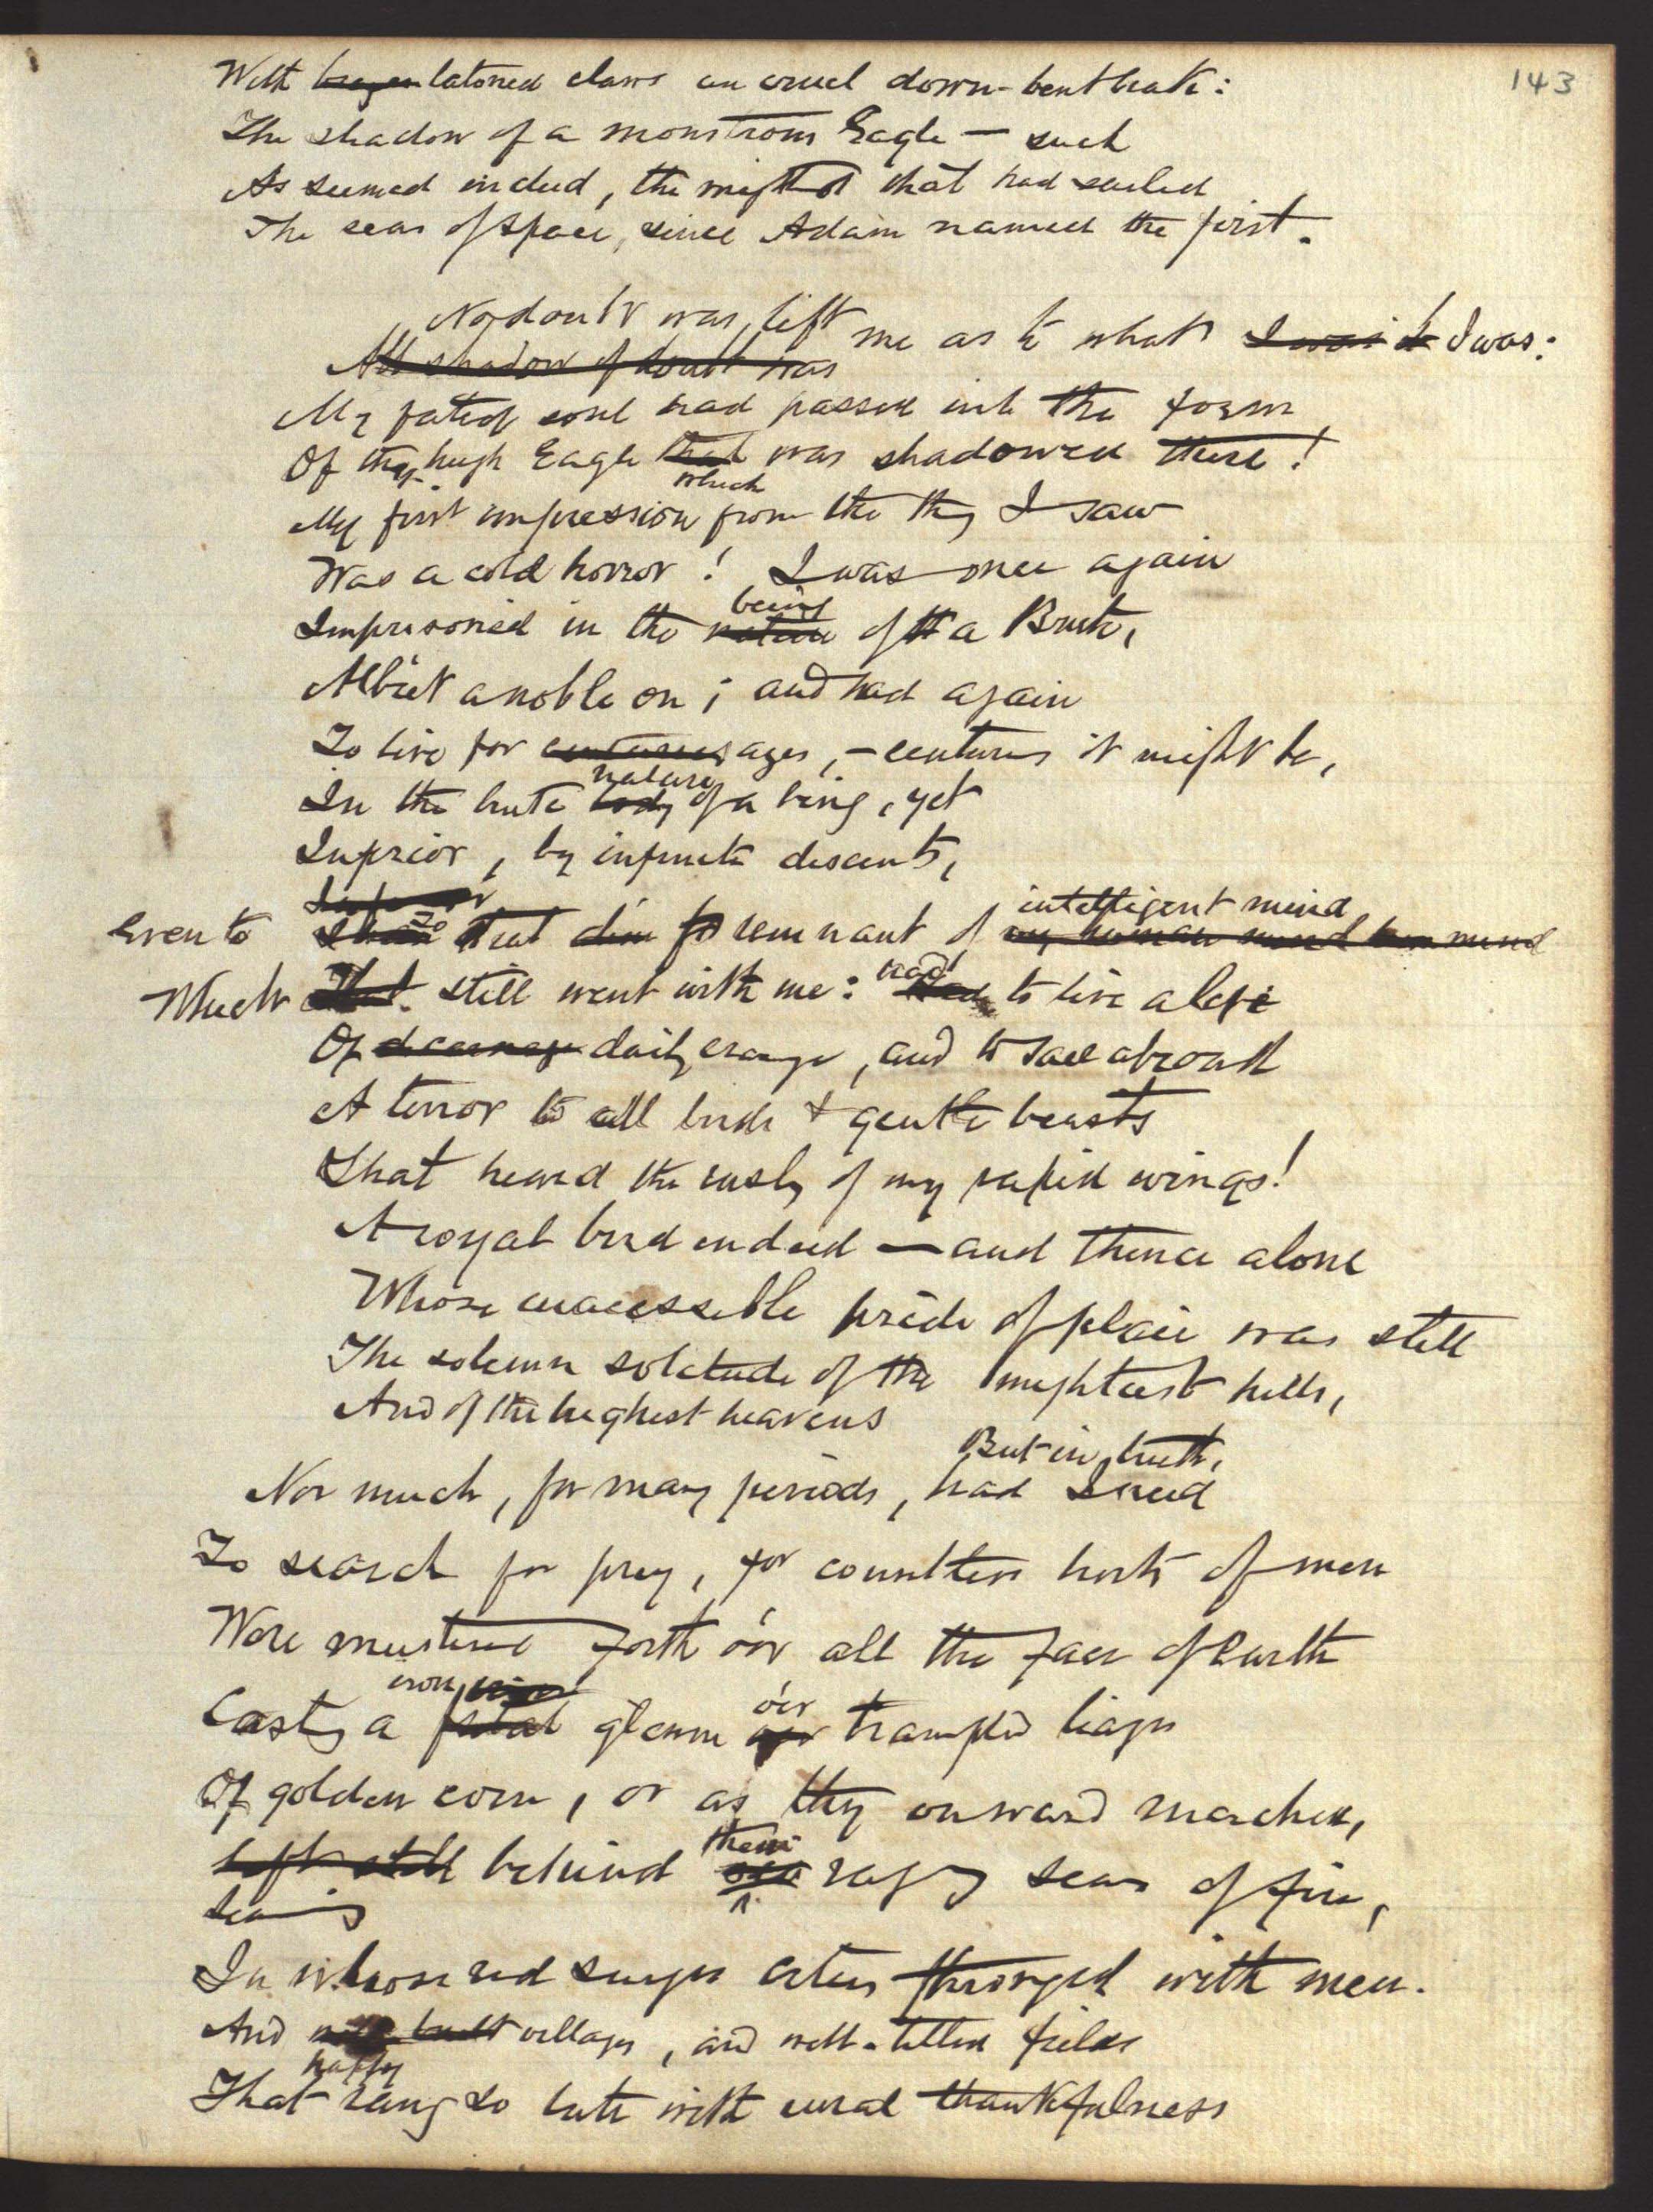 143
With brazen latoned claws an cruel down-bent beak:
The shadow of a monstrous Eagle — such
As seemed indeed, the mightst that had sailed
The seas of space, since Adam named the first.
No doubt was left me as to what I was I was:
All shadow of doubt was
My fated soul had passed into the form
Of the huge Eagle that was shadowed there!
which
My first impression from the thing I saw
Was a cold horror! I was once again
being
Imprisoned in the nature of a Brute,
Albeit a noble on; and had again
To live for centuries ages, — centuries it might be,
nature
In the brute body of a being, yet
Inferior, by infinite descents,
Inferior
intelligent mind
Even to that dim remnant of my human mind
Which That still went with me: had to live a life
Of daily ravage, and to sail abroad
A terror to all birds & gentle beasts
That heard the rush of my rapid wings!
A royal bird indeed — and thence alone
Whose inaccessible pride of place was still
The solemn solitude of the mightiest hills,
And of the highest heavens
But in truth,
Nor much, for many periods, had I need
To search for prey, for countless hosts of men
Were mustered forth o'er all the face of Earth
iron
Casting a fatal gleam o'er trampled
Of golden corn, or as they onward marched,
them
Left still behind raging seas of fire,
Leaving
In whose red surges cities thronged with men.
And well built villages, and well-tilled fields
happy
That rang so late with rural thankfulness